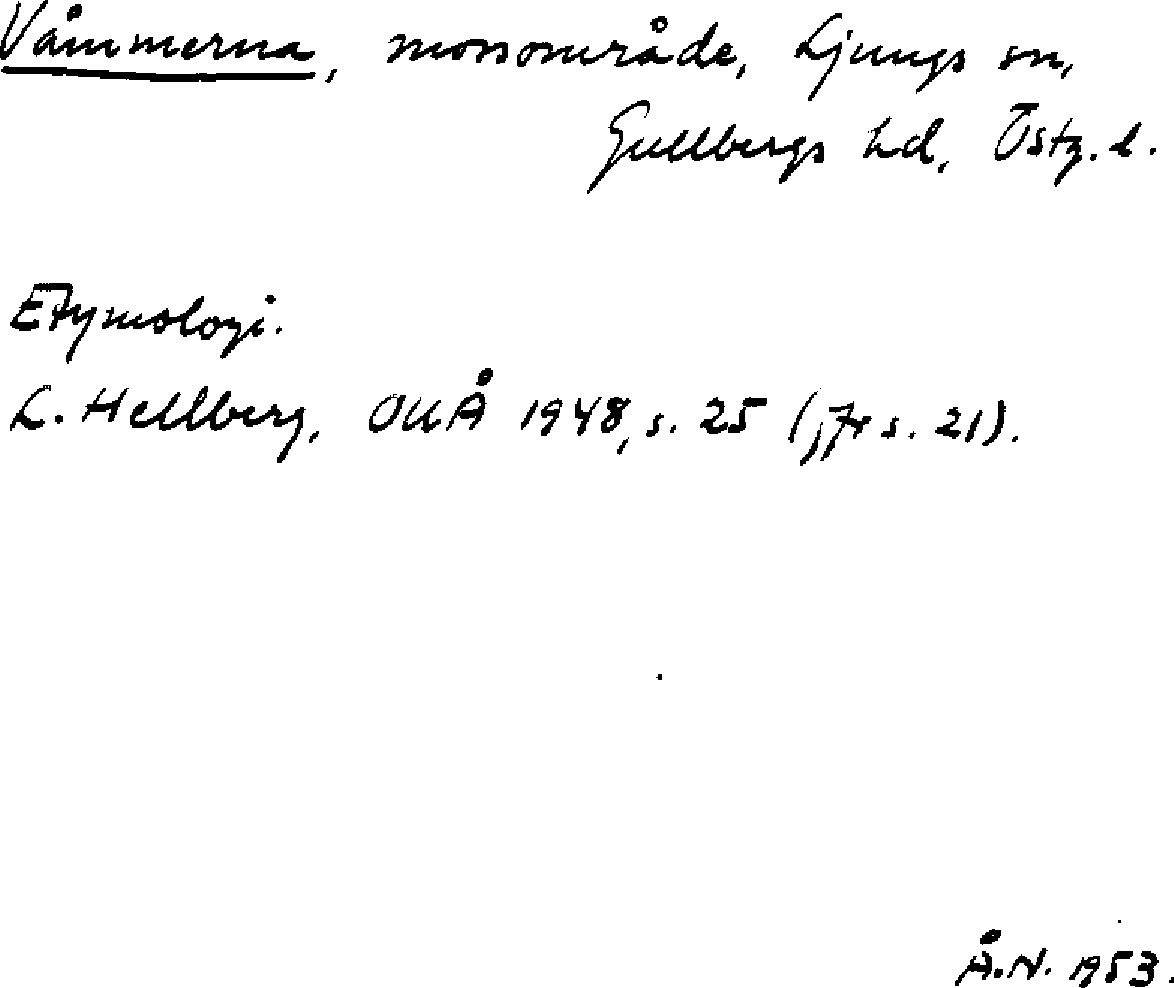 Våmmerna, mossområde, Ljungs sn,
Gullbergs hd, Östg. l.
Etymologi.
L. Hellberg, OUÅ 1948, s. 25 (jfr s. 21).
Å.N. 1953.